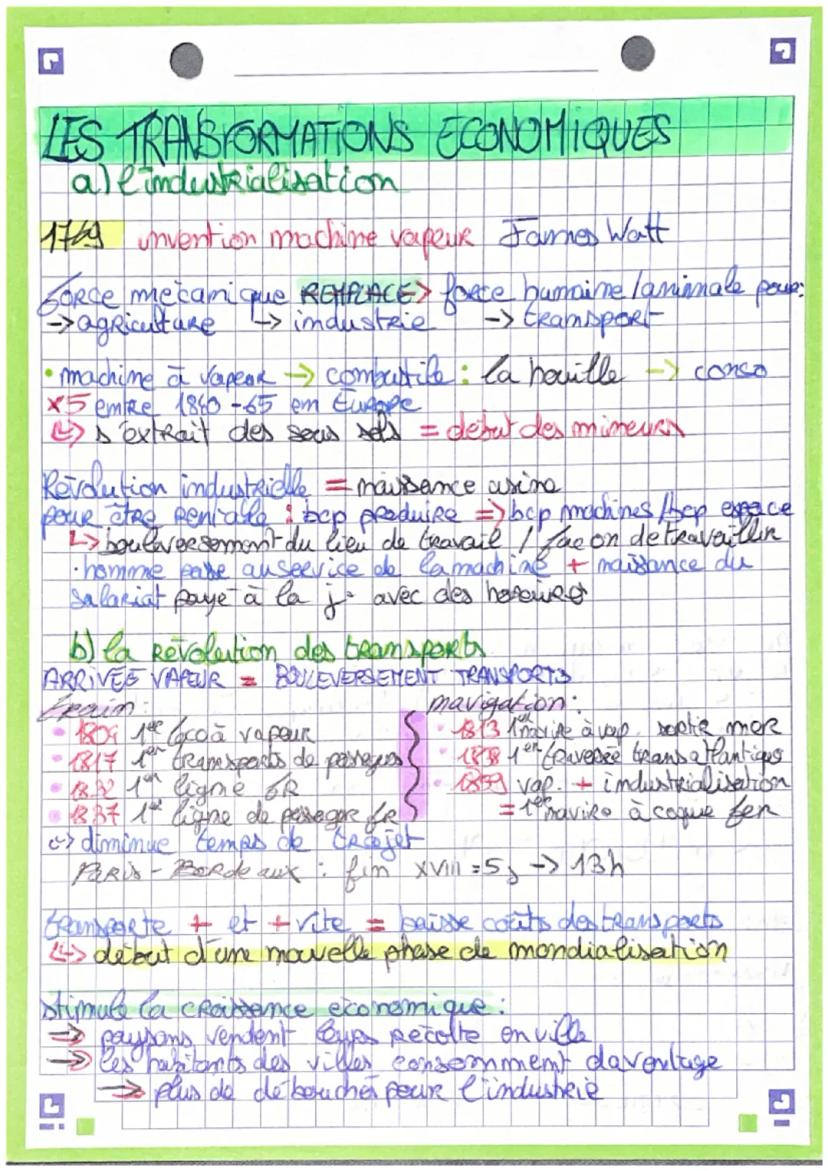 LES TRANSFORMATIONS ECONOMIQUES
a) l'industrialisation
1769 invention machine vapeur James Watt
force mécanique REMPLACE> force humaine/animale pour:
-> agriculture -> industrie -> transport
• machine à vapeur -> combustile : la houille -> conso
x5 entre 1840-65 en Europe
↳ s'extrait des sous sols = début des mineurs
Révolution industrielle = naissance usine
pour être rentable : bcp produire => bcp machines/bcp espace
↳ bouleversement du lieu de travail / façon de travailler
· homme passe au service de la machine + naissance du
salariat payé à la j° avec des horaires
b) la révolution des transports
ARRIVÉE VAPEUR = BOULEVERSEMENT TRANSPORTS
train:
• 1804 1ère loco à vapeur
• 1817 1er transports de passagers
• 1832 1ère ligne FR
• 1837 1ère ligne de passager fR
navigation:
• 1813 1er navire à vap. sortie mer
• 1838 1er traversée transatlantique
• 1859 vap. + industrialisation
= 1er navire à coque fer
↳ diminue temps de trajet
Paris - Bordeaux : fin XVIII = 5j -> 13h
transporte + et + vite = baisse coûts des transports
↳ début d'une nouvelle phase de mondialisation
stimule la croissance économique :
-> paysans vendent leurs récolte en ville
-> les habitants des villes consomment davantage
-> plus de débouchés pour l'industrie